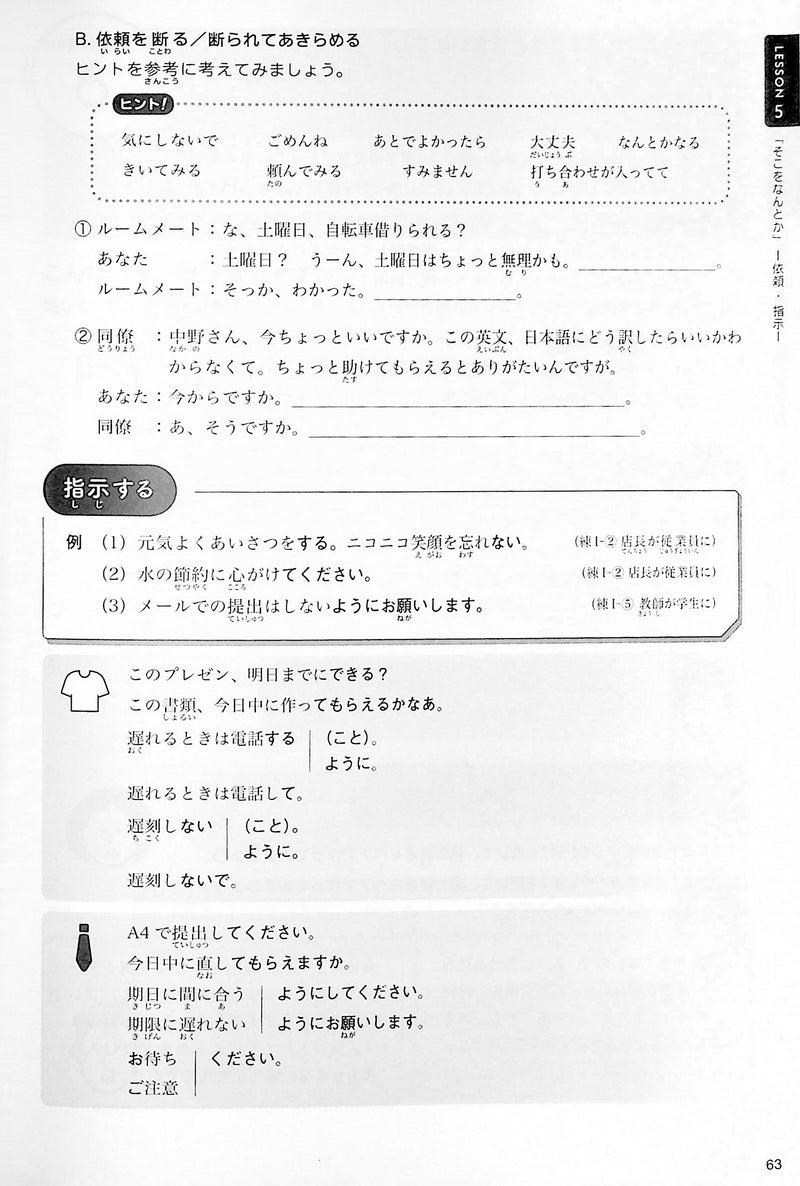 B. 依頼を断る／断られてあきらめる
いらい ことわ
ヒントを参考に考えてみましょう。
さんこう
ヒント!
気にしないで ごめんね あとでよかったら 大丈夫 なんとかなる
だいじょうぶ
きいてみる 頼んでみる すみません 打ち合わせが入ってて
たの う あ
① ルームメート：な、土曜日、自転車借りられる？
あなた ：土曜日？ うーん、土曜日はちょっと無理かも。＿＿＿＿＿＿＿＿。
むり
ルームメート：そっか、わかった。＿＿＿＿＿＿＿＿。
② 同僚 ：中野さん、今ちょっといいですか。この英文、日本語にどう訳したらいいかわ
どうりょう なかの えいぶん やく
からなくて。ちょっと助けてもらえるとありがたいんですが。
たす
あなた：今からですか。＿＿＿＿＿＿＿＿＿＿＿＿＿＿＿＿。
同僚 ：あ、そうですか。＿＿＿＿＿＿＿＿＿＿＿＿＿＿＿＿。
指示する
しじ
例 （1）元気よくあいさつをする。ニコニコ笑顔を忘れない。 （練Ⅰ-② 店長が従業員に）
えがお わす てんちょう じゅうぎょういん
（2）水の節約に心がけてください。 （練Ⅰ-② 店長が従業員に）
せつやく こころ
（3）メールでの提出はしないようにお願いします。 （練Ⅰ-⑤ 教師が学生に）
ていしゅつ ねが きょうし
このプレゼン、明日までにできる？
この書類、今日中に作ってもらえるかなあ。
しょるい
遅れるときは電話する （こと）。
おく
ように。
遅れるときは電話して。
遅刻しない （こと）。
ちこく
ように。
遅刻しないで。
A4で提出してください。
ていしゅつ
今日中に直してもらえますか。
なお
期日に間に合う ようにしてください。
きじつ ま あ
期限に遅れない ようにお願いします。
きげん おく ねが
お待ち ください。
ご注意
LESSON 5
「そこをなんとか」ー依頼・指示ー
63